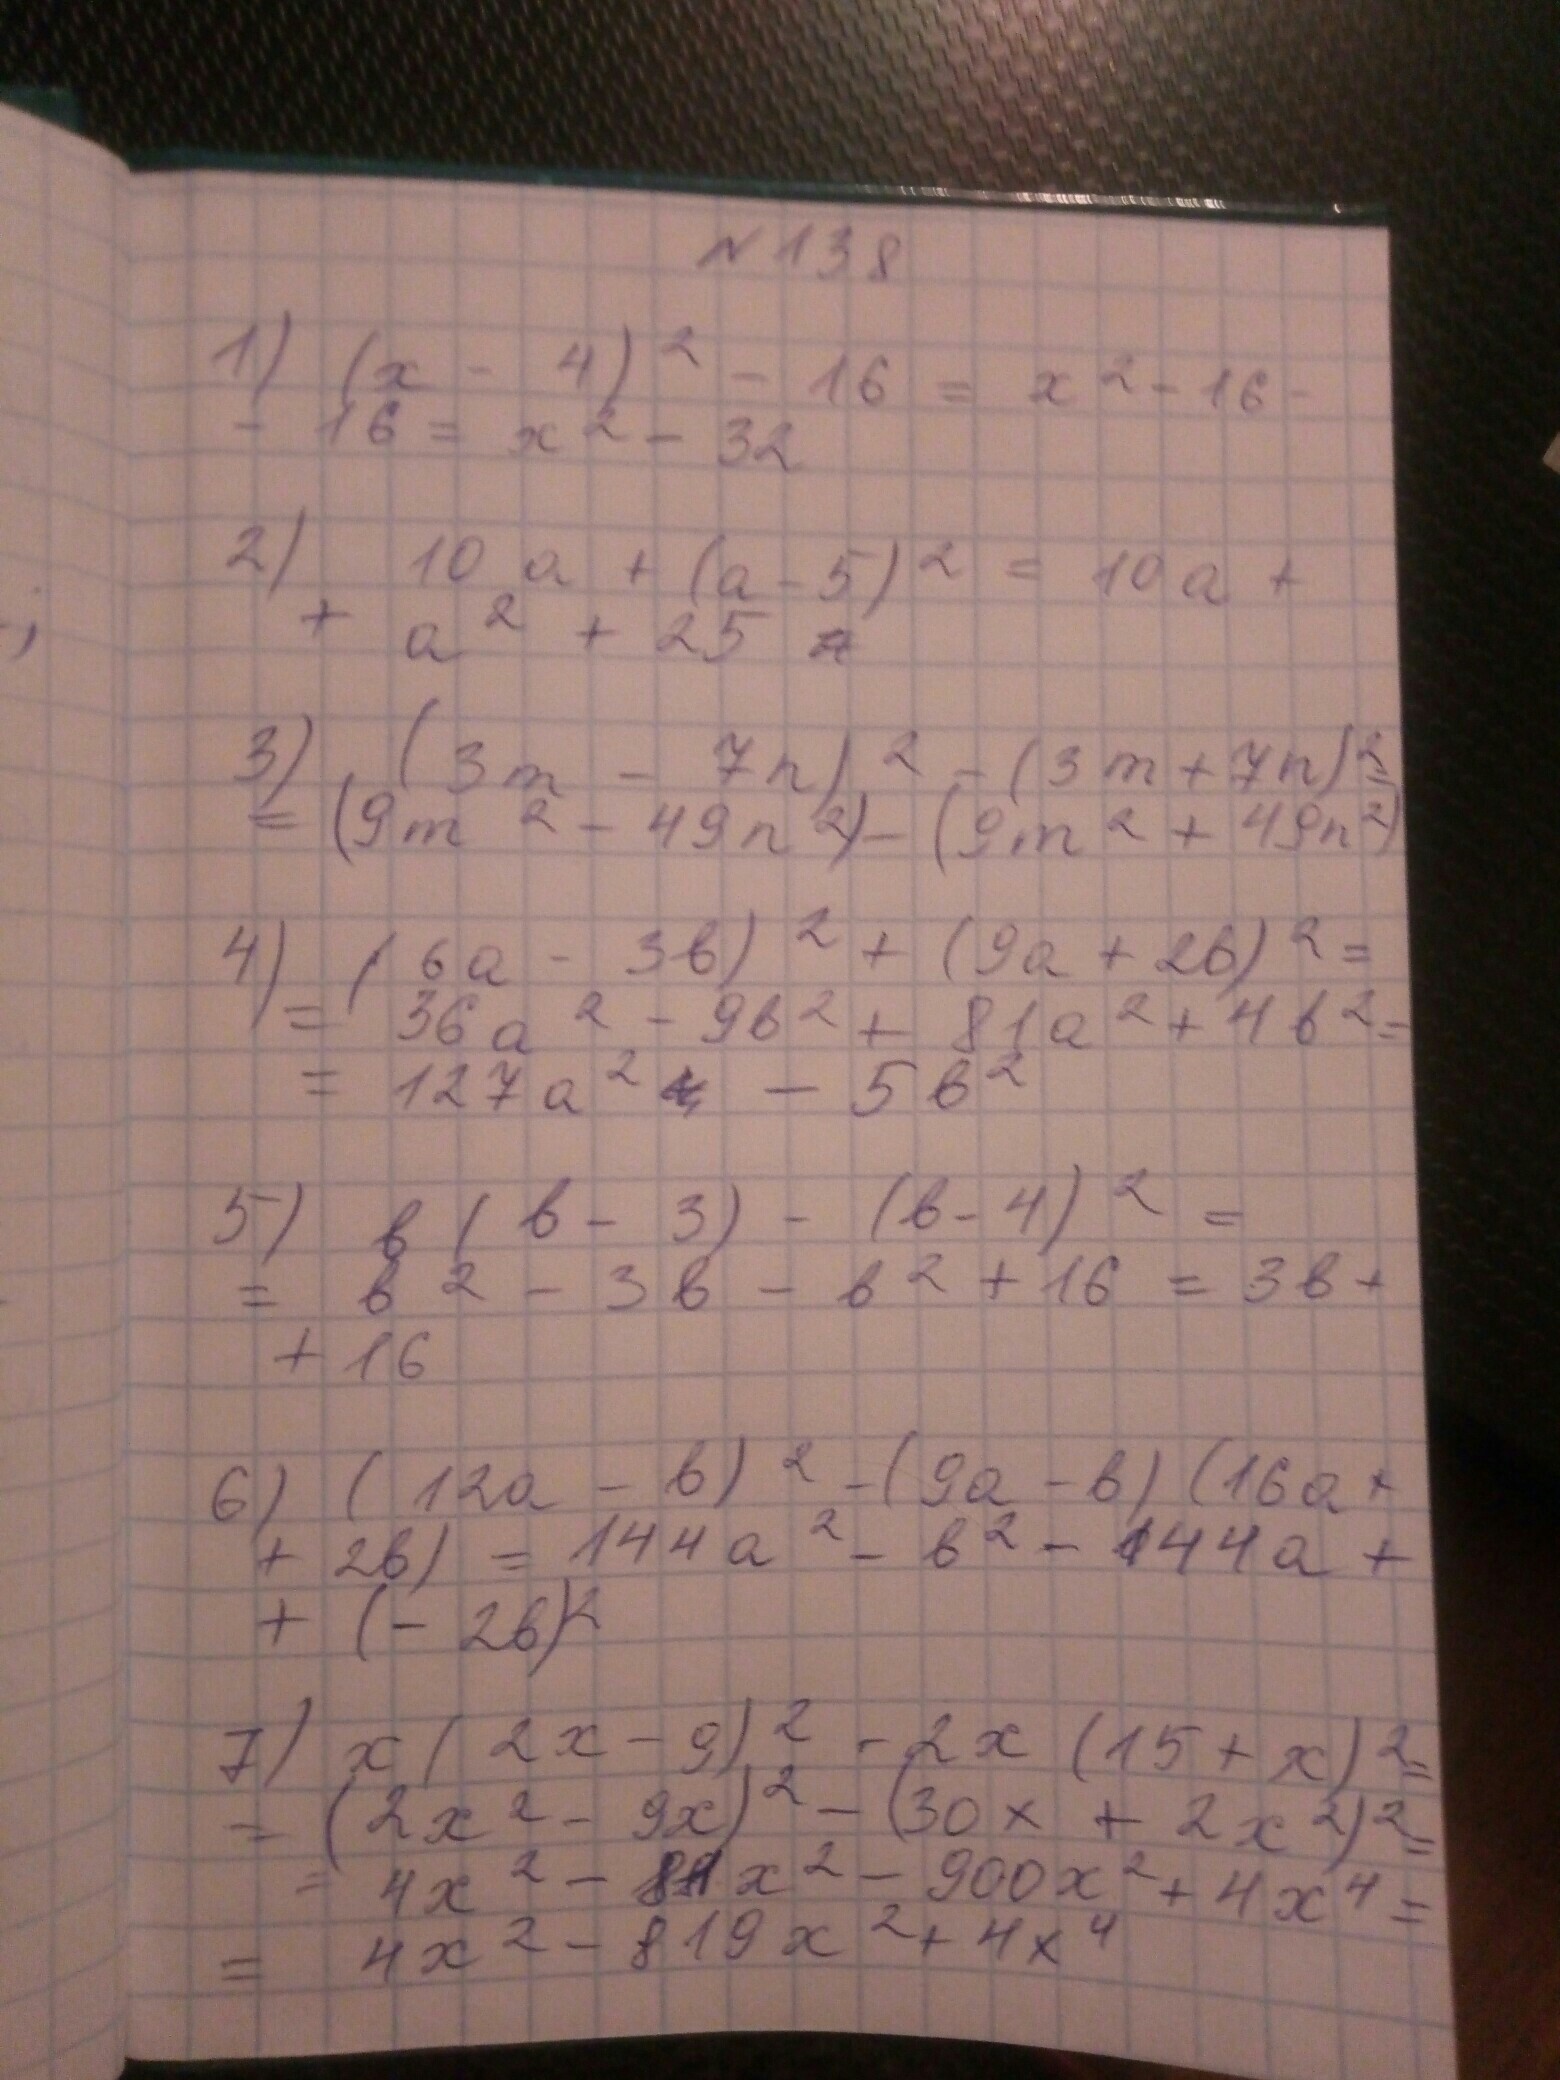 №138
1) (x - 4)² - 16 = x² - 16 -
- 16 = x² - 32
2) 10 a + (a - 5)² = 10 a +
+ a² + 25
3) (3m - 7n)² - (3m + 7n)² =
= (9m² - 49n²) - (9m² + 49n²)
4) (6a - 3в)² + (9a + 2в)² =
= 36a² - 9в² + 81a² + 4в² =
= 127a² - 5в²
5) в(в - 3) - (в - 4)² =
= в² - 3в - в² + 16 = 3в +
+ 16
6) (12a - в)² - (9a - в)(16a +
+ 2в) = 144a² - в² - 144a +
+ (- 2в)²
7) x(2x - 9)² - 2x(15 + x)² =
= (2x² - 9x)² - (30x + 2x²)² =
= 4x² - 81x² - 900x² + 4x⁴ =
= 4x² - 819x² + 4x⁴